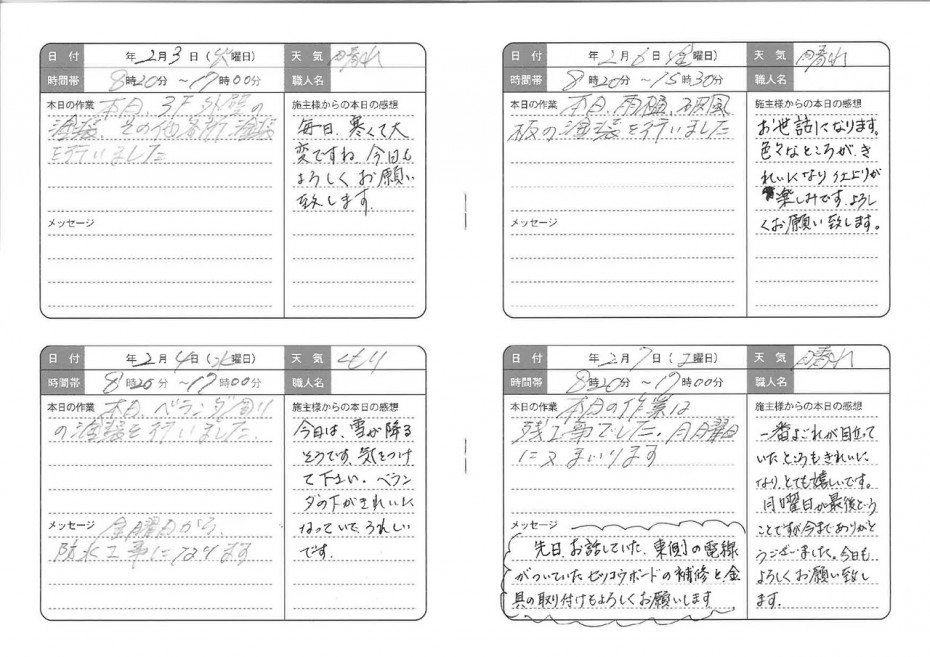 日 付 年 2月 3日 (火曜日) 天 気 晴れ
時間帯 8時20分 ~17時00分 職人名
本日の作業 本日、3F外壁の
塗装、その他各所塗装
を行いました
施主様からの本日の感想
毎日、寒くて大
変ですね、今日も
よろしくお願い
致します。
メッセージ
日 付 年 2月 4日 (水曜日) 天 気 くもり
時間帯 8時20分 ~17時00分 職人名
本日の作業 本日、ベランダ周り
の塗装を行いました。
施主様からの本日の感想
今日は、雪が降る
そうです、気をつけ
て下さい。ベラン
ダの下がきれいに
なっていて、うれしい
です。
メッセージ 金曜日から、
防水工事になります
日 付 年 2月 6日 (金曜日) 天 気 晴れ
時間帯 8時20分 ~15時30分 職人名
本日の作業 本日、雨樋、破風
板の塗装を行いました
施主様からの本日の感想
お世話になります。
色々なところが、き
れいになり仕上りが
楽しみです、よろし
くお願い致します。
メッセージ
日 付 年 2月 7日 (土曜日) 天 気 晴れ
時間帯 8時20分 ~17時00分 職人名
本日の作業 本日の作業は
残工事でした。月曜日
に又まいります
施主様からの本日の感想
一番よごれが目立って
いたところもきれいに
なり、とても嬉しいです。
月曜日が最後という
ことですが今までありがと
うございました。今日も
よろしくお願い致し
ます。
メッセージ
先日、お話していた、東側の電線
がついていたセッコウボードの補修と金
具の取り付けもよろしくお願いします